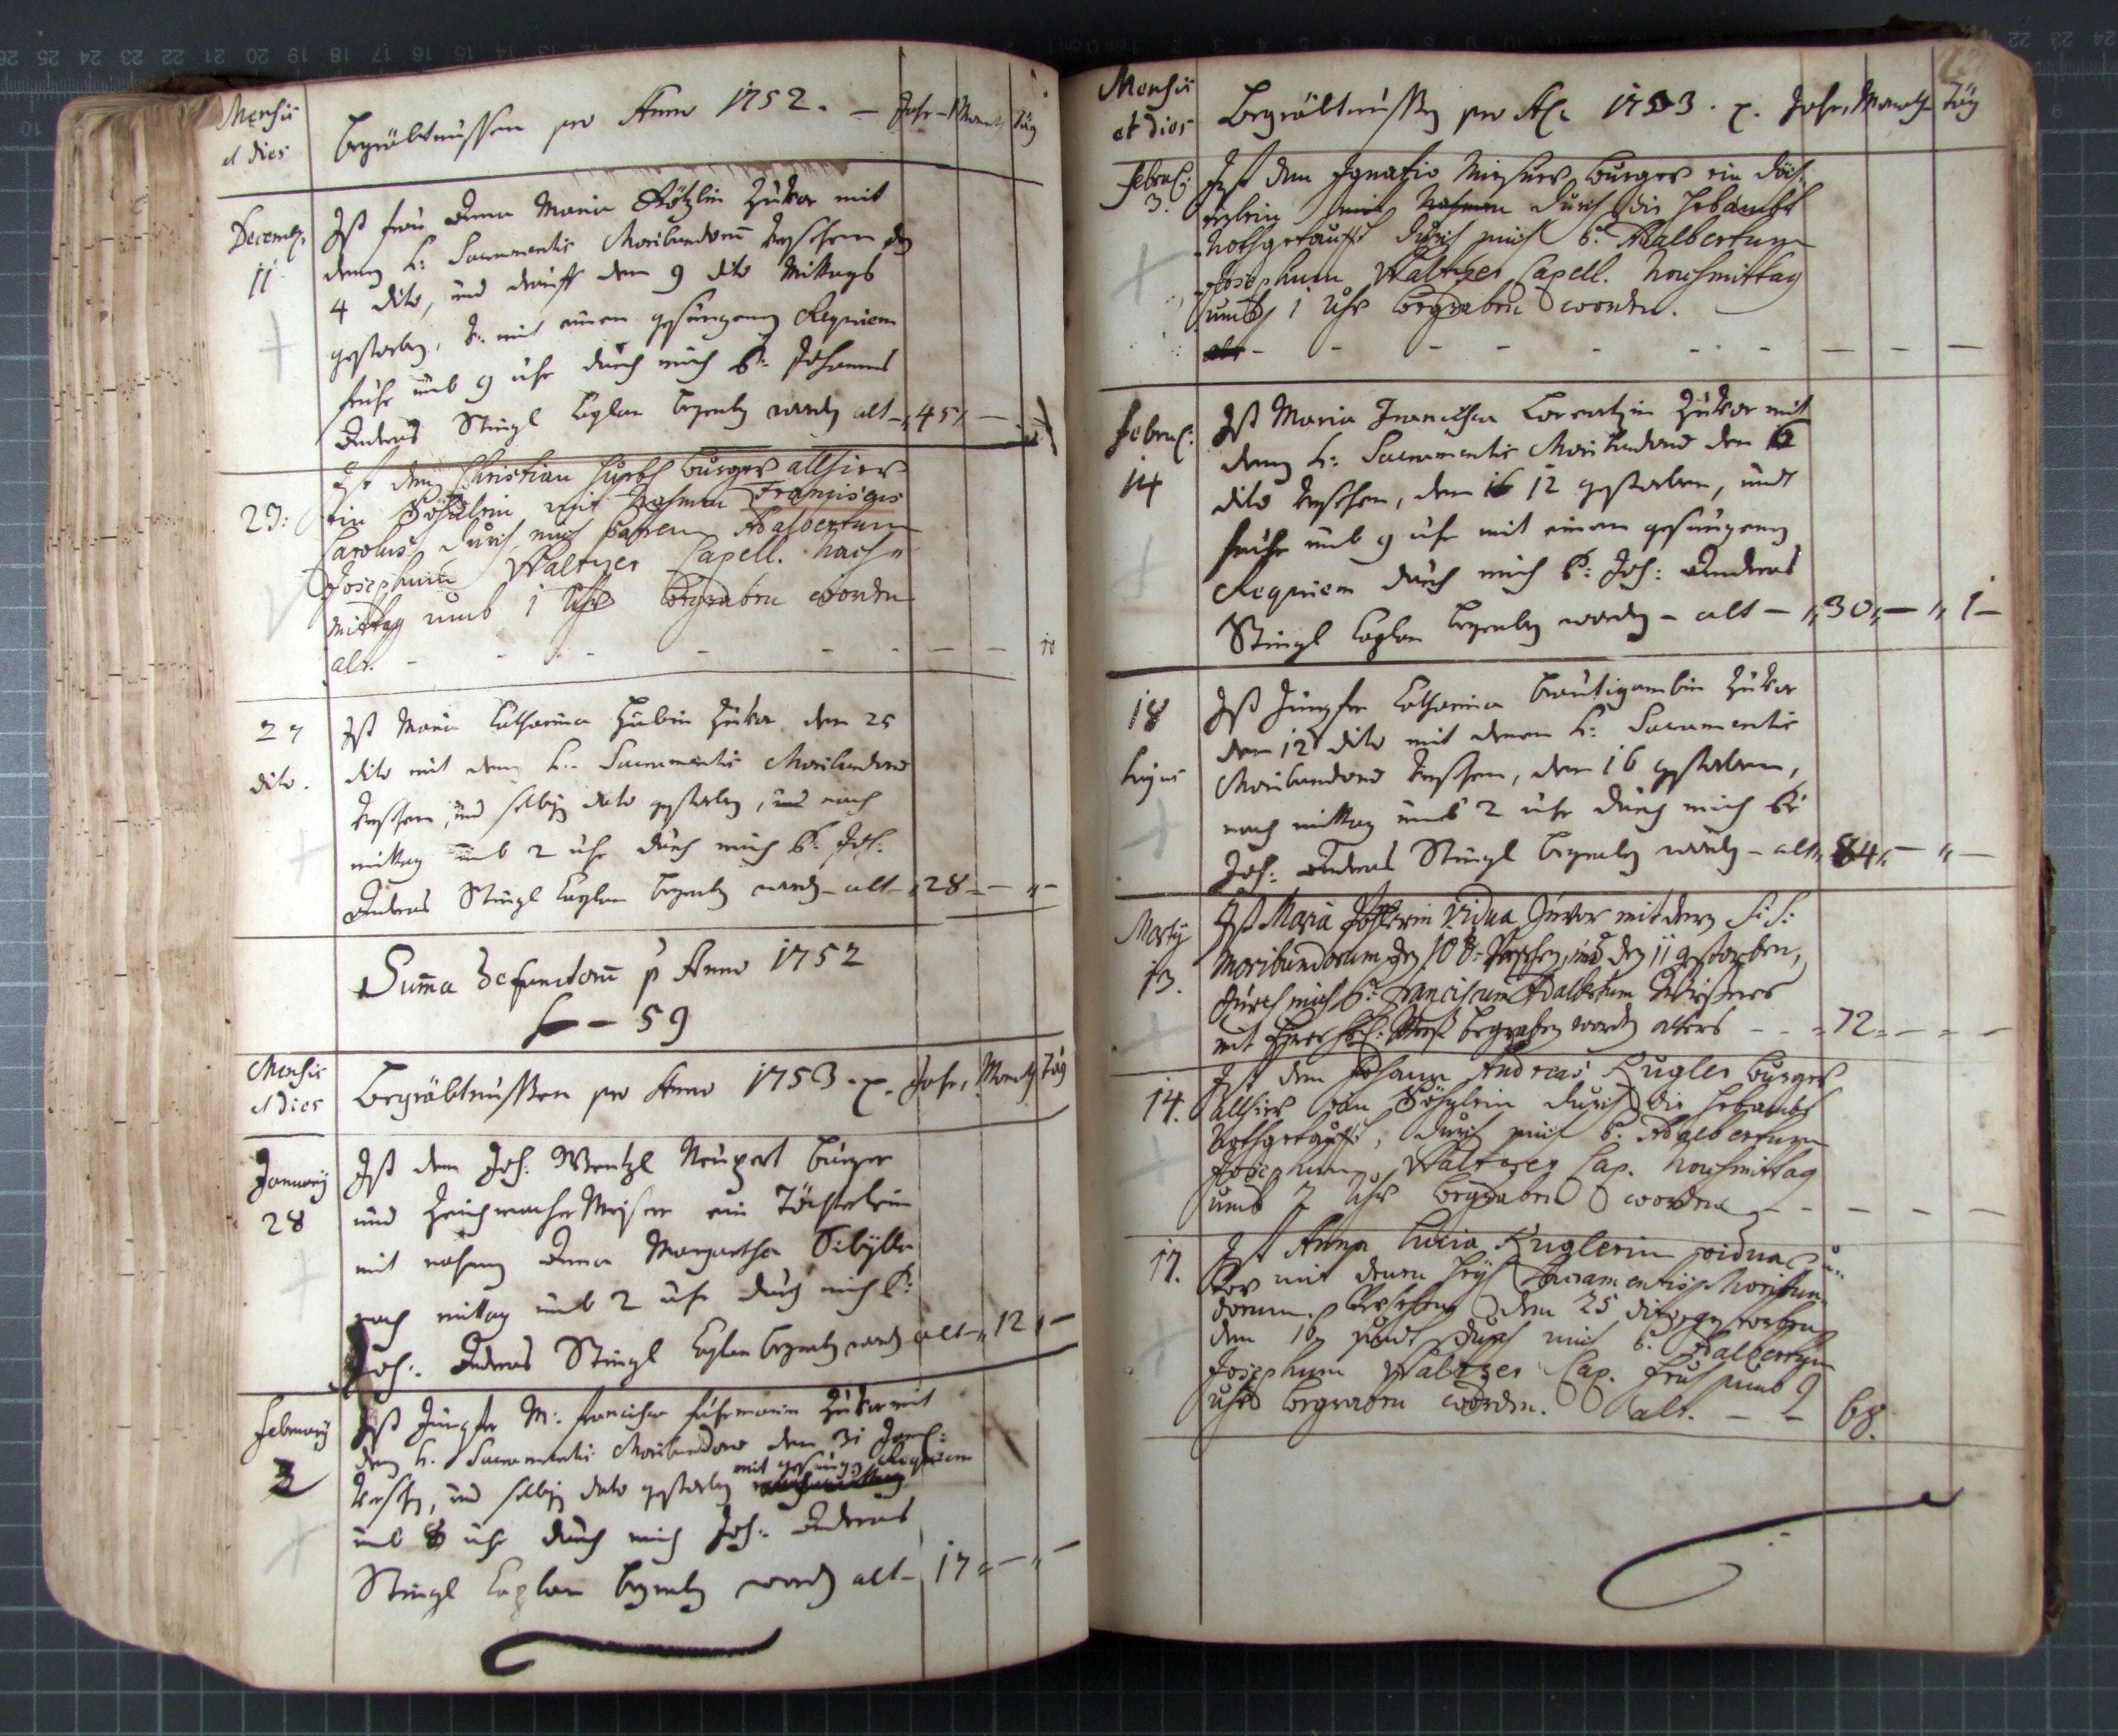 Mensis
et dies
Begräbtnussen pro Anno 1752. – Jahr – Monath Täg
Decemb.
11
Ist frau Anna Maria Rötzlin Zuvor mit
denen h: Sacramentis Moribundorum versehen den
4 dito, und drauff den 9 dito Mittags
gestorben, & mit einen gesungenen Requiem
fruhe umb 9 uhr durch mich P: Johannes
Andreas Stingl Caplan begraben worden alt – 45 –
23:
Ist dem Christian burger allhier
ein Söhnlein mit Nahmen Franciscus
Carolus durch mich Patrem Adalbertum
Josephum Waltzer Capell. Nach
mittag umb 1 Uhr begraben worden
alt. – – – – – – – – 10
27
dito.
Ist Maria Catharina Zuvor den 25
dito mit denen h: Sacramentis Moribundorum
versehen, und selbigen dato gestorben, und nach
mittag umb 2 uhr durch mich P: Joh:
Andreas Stingl Caplan begraben worden – alt – 28 – –
Summa Defunctorum p Anno 1752
– 59
Mensis
et dies
Begräbtnussen pro Anno 1753. Jahr, Monath Täg
January
28
Ist dem Joh: Wentzl Neupert burger
und Zeichmacher Meister ein Töchterlein
mit nahmen Anna Margaretha Sibylla
nach mittag umb 2 uhr durch mich P:
Joh: Andreas Stingl Caplan begraben worden alt – 12 –
February
3
Ist Jungfer M: Francisca Zuvor mit
denen h. Sacramentis Moribundorum den 31 Jan:
versehen, und selbigen dato gestorben mit gesungen Requiem
umb 8 uhr durch mich Joh: Andreas
Stingl Caplan begraben worden alt – 17 – –
Mensis
et dies
Begräbtnussen pro Ao 1753. Jahr, Monath Täg
Febru:
3.
Ist dem Ignatio burger ein Döch-
terlein mit Nahmen durch die hebambl
Nothgetaufft durch mich P: Adalbertum
Josephum Waltzer Capell. Nachmittag
umb 1 Uhr begraben worden.
alt – – – – – – – – –
Febru:
14
Ist Maria Francisca Lorentzin Zuvor mit
denen h: Sacramentis Moribundorum den
dito versehen, den 12 gestorben, undt
fruhe umb 9 uhr mit einem gesungenen
Requiem durch mich P: Joh: Andreas
Stingl Caplan begraben worden – alt – 30 – 1 –
18
hujus
Ist Jungfer Catharina Bräutigambin Zuvor
den 12 dito mit denen h: Sacramentis
Moribundorum versehen, den 16 gestorben,
nach mittag umb 2 uhr durch mich P:
Joh: Andreas Stingl begraben worden – alt 84 – –
Marty
13.
Ist Maria Vidua Zuvor mit denen S: S:
Moribundorum den 10 versehen, und den 11 gestorben,
durch mich P: Franciscum Adalbertum
mit einer begraben worden alters – – 72 – –
14.
Ist dem Johann Andreas Kugler burger
allhier ein Söhnlein durch die hebambl
Nothgetaufft, durch mich P: Adalbertum
Josephum Waltzer Cap. Nachmittag
umb Uhr begraben worden – – – – –
17.
Ist Anna Lucia Kuglerin vidua zu-
vor mit denen heyl Sacramentis Moribun-
dorum versehen den 25 dito gestorben
den 16 und durch mich P. Adalbertum
Josephum Waltzer Cap. fruh umb 9
uhr begraben worden. alt. – – 68.